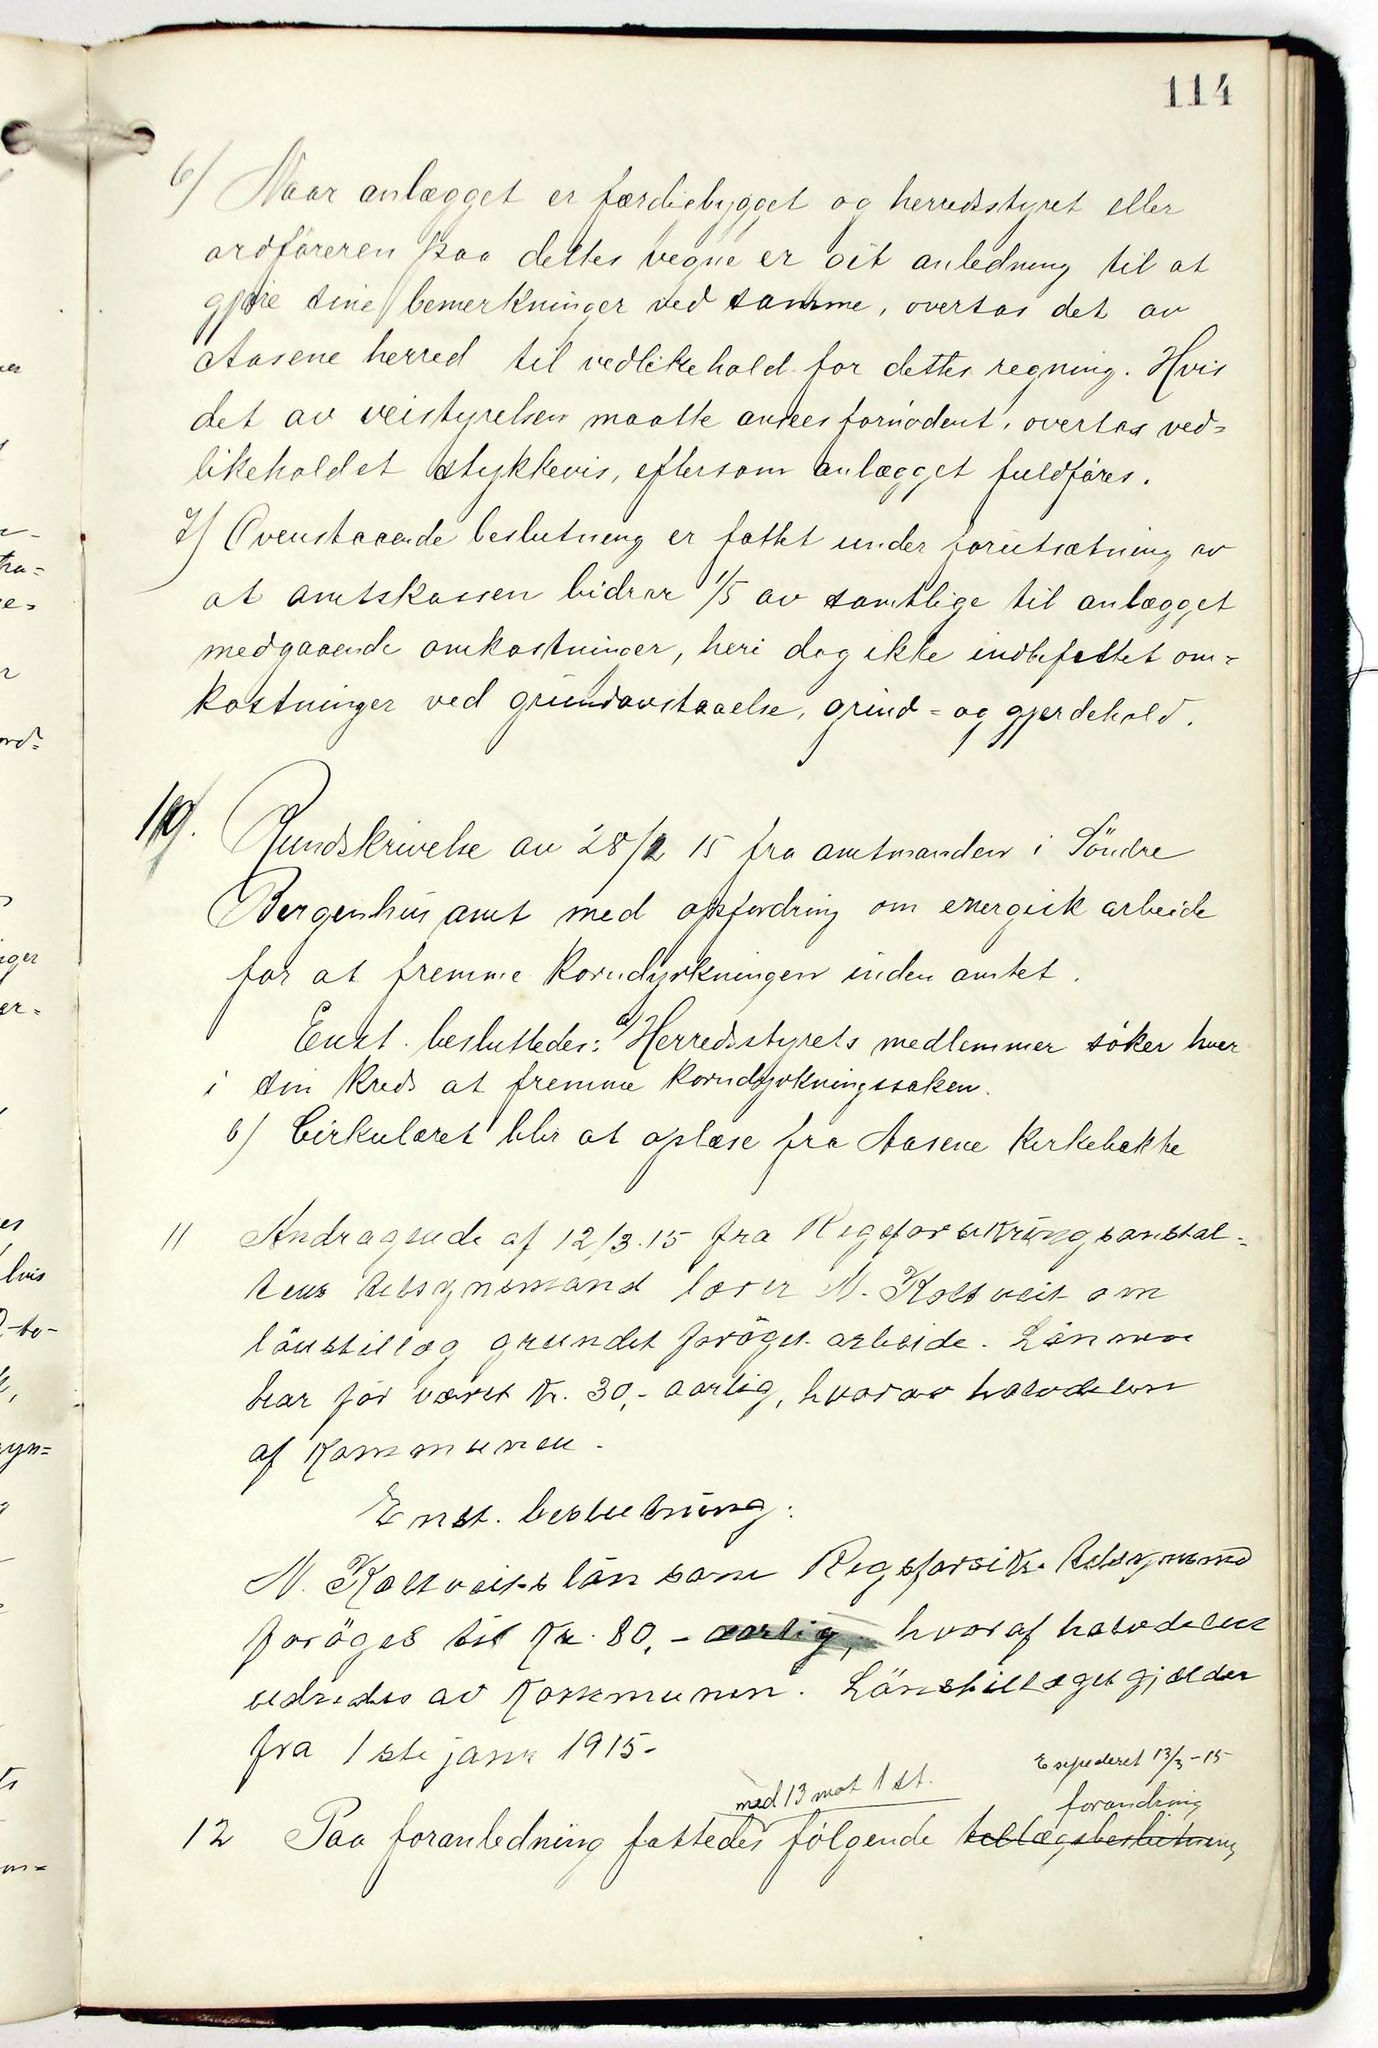 114
6) Naar anlægget er færdigbygget og herredsstyret eller
ordföreren paa dettes vegne er git anledning til at
gjøre sine bemerkninger ved samme, overtas det av
Aasene herred til vedlikehold for dettes regning. Hvis
det av veistyrelsen maatte ansees fornödent, overtas ved=
likeholdet stykkevis, eftersom anlægget fuldføres.
7) Ovenstaaende beslutning er fattet under forutsætning av
at amtskassen bidrar 1/5 av samtlige til anlægget
medgaaende omkostninger, heri dog ikke indbefattet om=
kostninger ved grundavstaaelse, grind= og gjerdehold.
10. Rundskrivelse av 28/2 15 fra amtmanden i Söndre
Bergenhus amt med opfordring om energisk arbeide
for at fremme korndyrkningen inden amtet.
Enst. besluttedes: a) Herredsstyrets medlemmer söker hver
i sin kreds at fremme korndyrkningssaken.
b) Cirkulæret blir at oplæse fra Aasene kirkebakke
11 Andragende af 12/3.15 fra Rigsforsikringsanstal=
tens tilsynsmand lærer N. Kaltveit om
lönstillæg grundet forøget arbeide. Lönnen
har før været Kr. 30,- aarlig, hvorav halvdelen
af Kommunen.
Enst. beslutning:
N. Kaltveits lön som Rigsforsikr. tilsynsmd
foröges til Kr. 80,- aarlig, hvoraf halvdelen
udredes av Kommunen. Lönstillæget gjælder
fra 1ste janr 1915-
Expederet 13/3-15
med 13 mot 1 st.
forandring
12 Paa foranledning fattedes følgende tillægsbeslutning